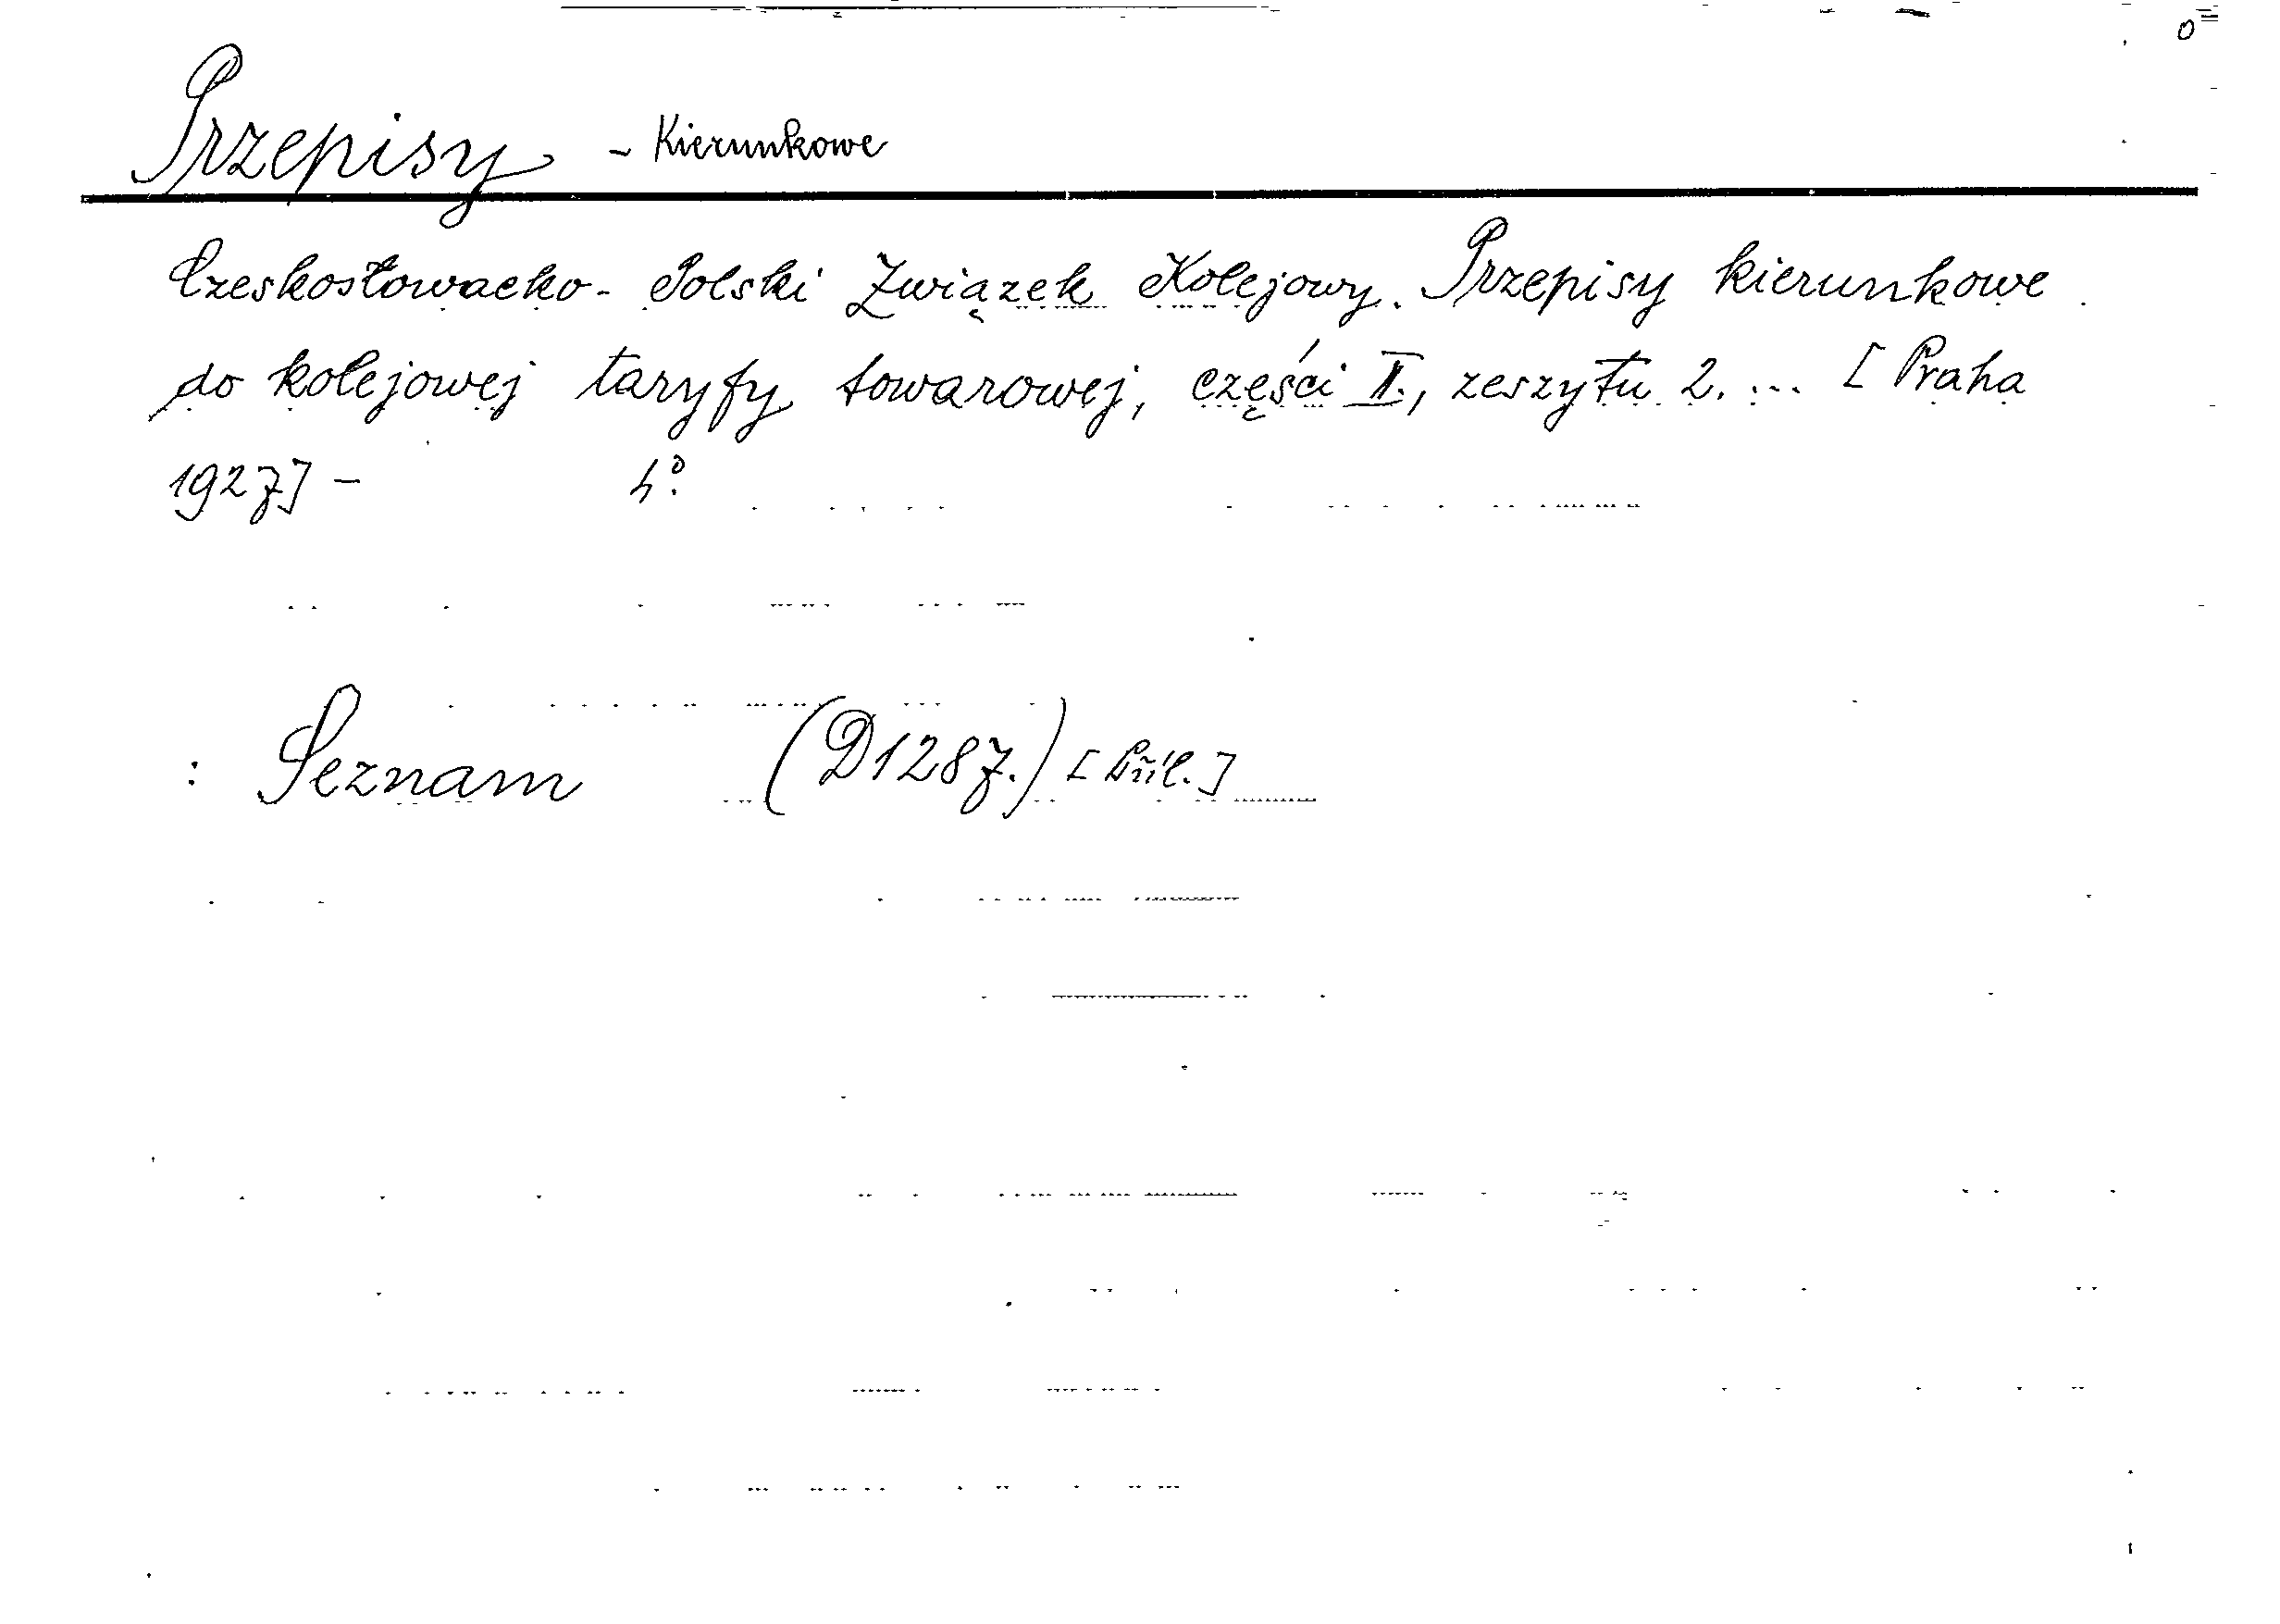 Przepisy - Kierunkowe
Czeskosłowacko-Polski Związek Kolejowy. Przepisy kierunkowe
do kolejowej taryfy towarowej, części II., zeszytu 2. ... [Praha
1927] - 4°.
: Seznam (D1287.) [Příl.]